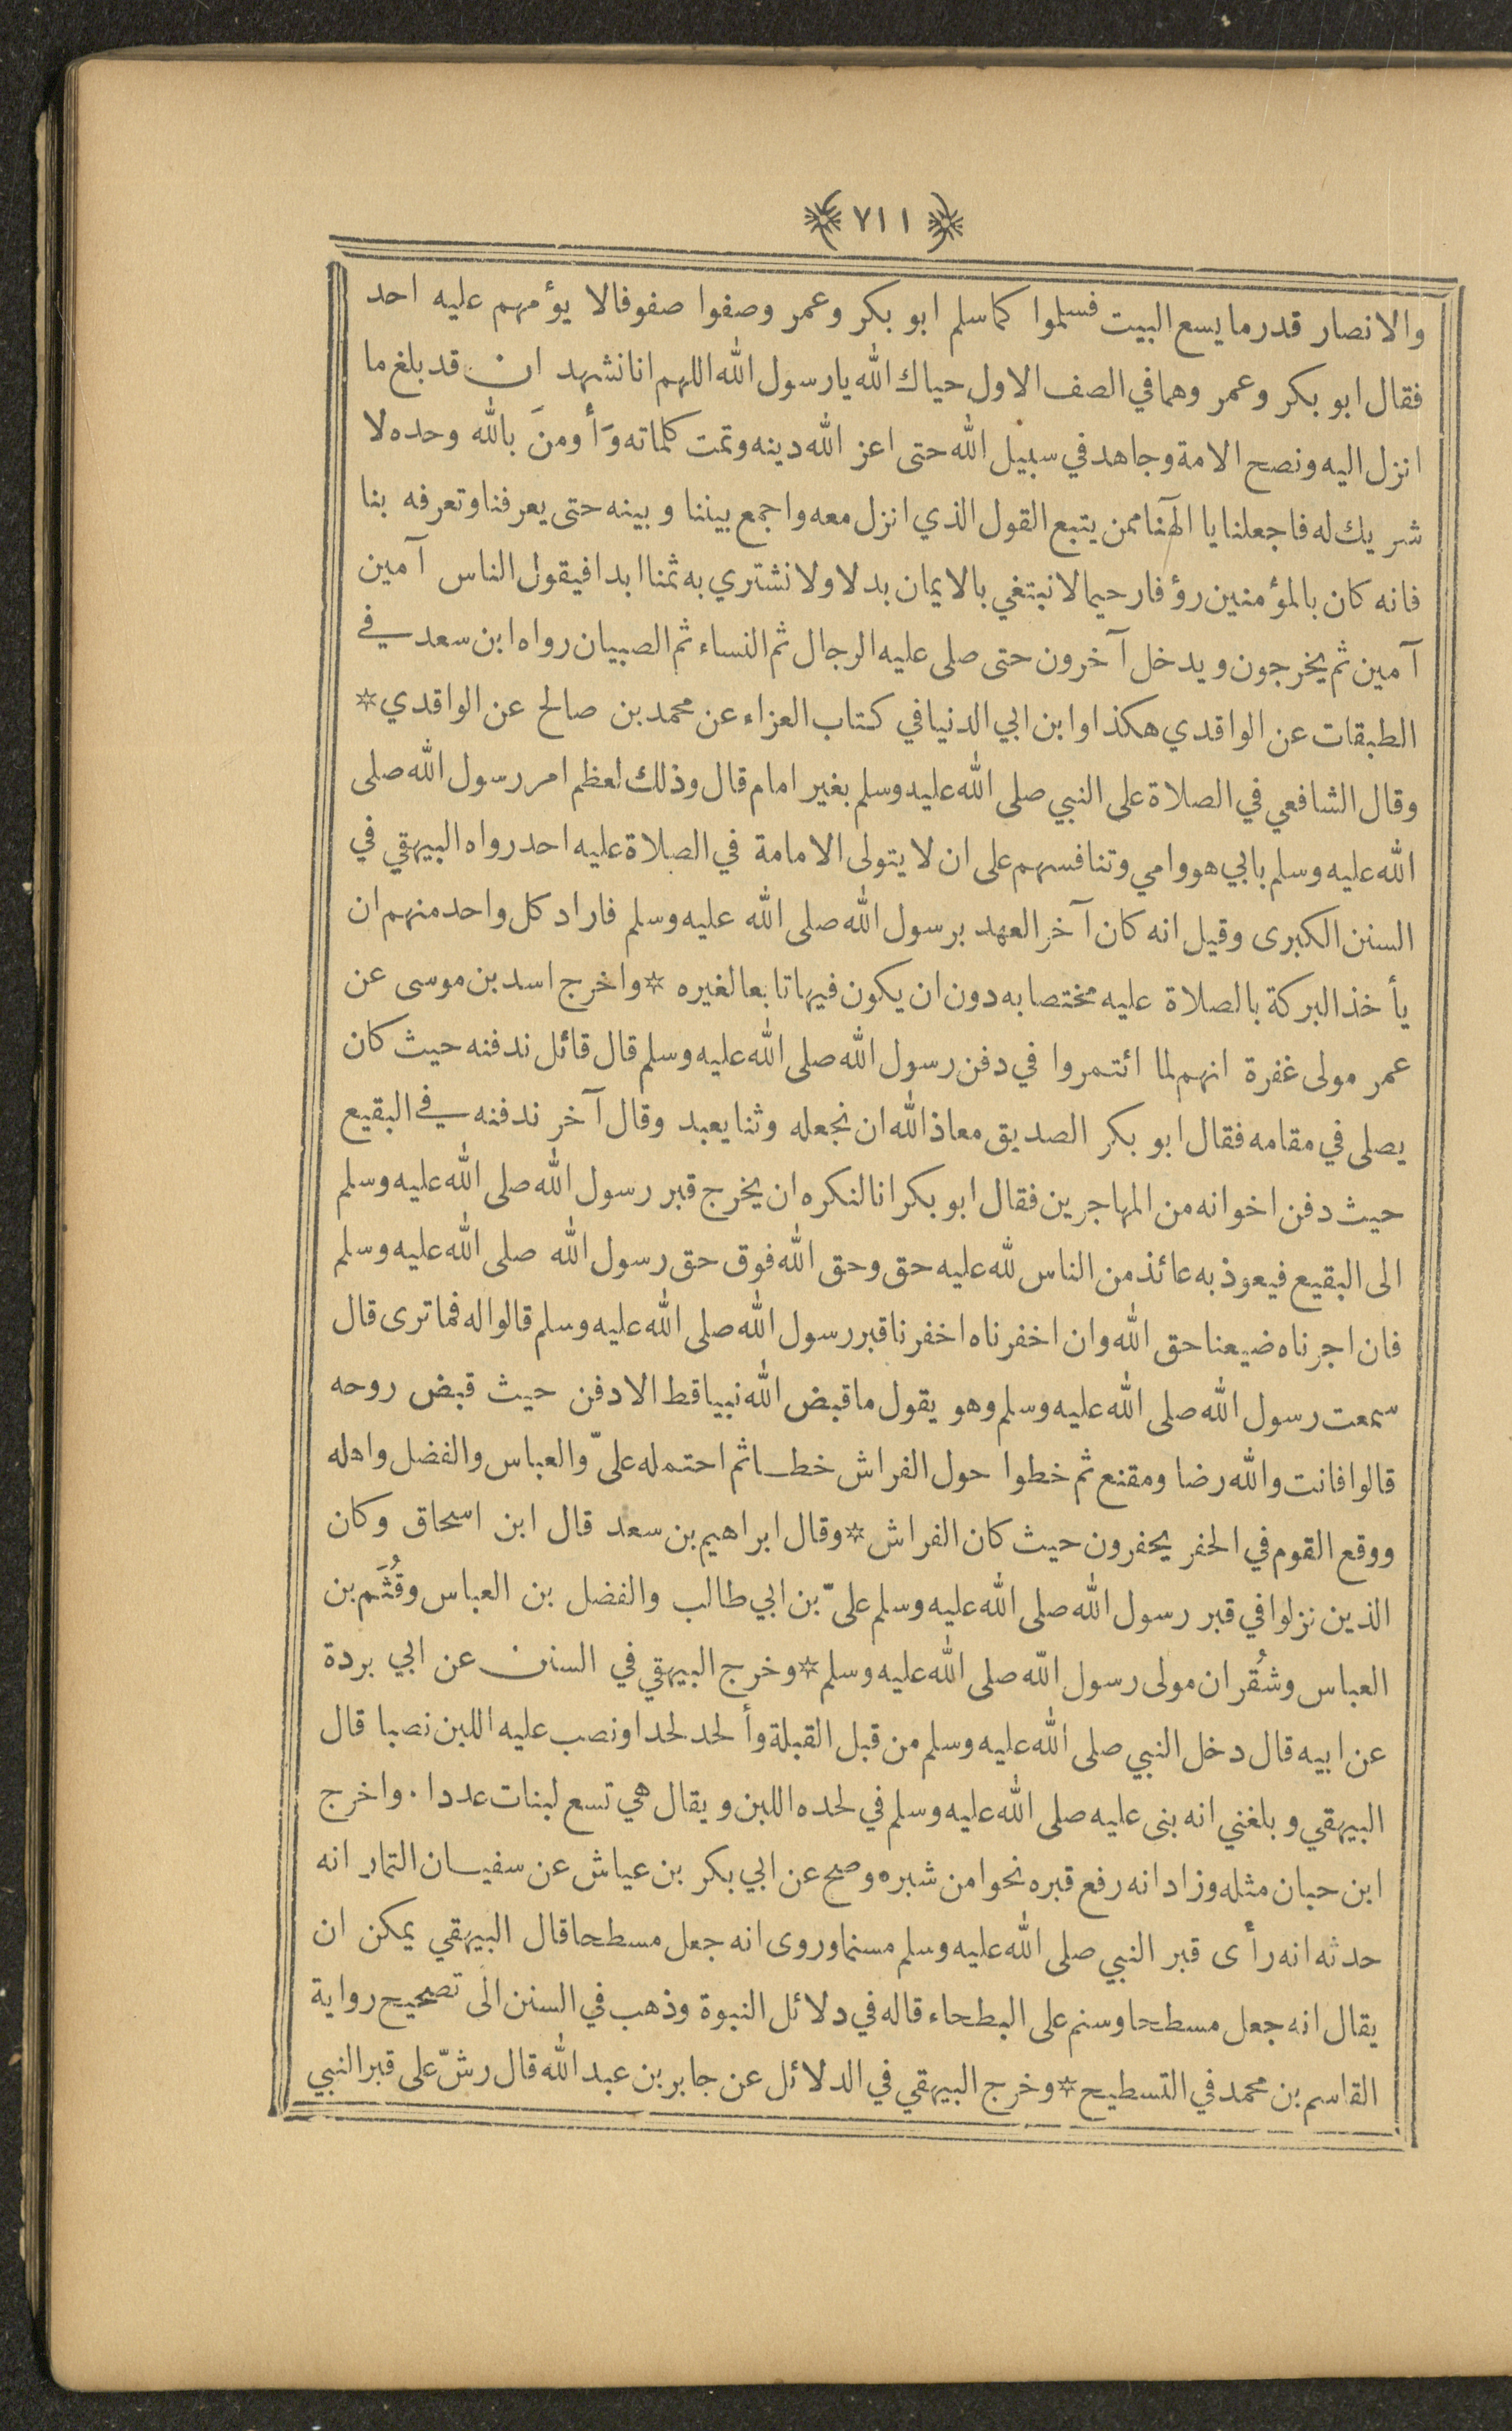 ﴿ ٧١١ ﴾
والانصار قدر ما يسع البيت فسلموا كما سلم ابو بكر وعمر وصفوا صفوفا لا يؤمهم عليه احد
فقال ابو بكر وعمر وهما في الصف الاول حياك الله يا رسول الله اللهم انا نشهد ان قد بلغ ما
انزل اليه ونصح الامة وجاهد في سبيل الله حتى اعز الله دينه وتمت كلماته وَأومنَ بالله وحده لا
شريك له فاجعلنا يا الٓهنا ممن يتبع القول الذي انزل معه واجمع بيننا وبينه حتى يعرفنا وتعرفه بنا
فانه كان بالمؤمنين رؤفا رحيما لا نبتغي بالايمان بدلا ولا نشتري به ثمنا ابدا فيقول الناس آمين
آمين ثم يخرجون ويدخل آخرون حتى صلى عليه الرجال ثم النساء ثم الصبيان رواه ابن سعد في
الطبقات عن الواقدي هكذا وابن ابي الدنيا في كتاب العزاء عن محمد بن صالح عن الواقدي *
وقال الشافعي في الصلاة على النبي صلى الله عليه وسلم بغير امام قال وذلك لعظم امر رسول الله صلى
الله عليه وسلم بابي هو وامي وتنافسهم على ان لا يتولى الامامة في الصلاة عليه احد رواه البيهقي في
السنن الكبرى وقيل انه كان آخر العهد برسول الله صلى الله عليه وسلم فاراد كل واحد منهم ان
يأخذ البركة بالصلاة عليه مختصا به دون ان يكون فيها تابعا لغيره * واخرج اسد بن موسى عن
عمر مولى غفرة انهم لما ائتمروا في دفن رسول الله صلى الله عليه وسلم قال قائل ندفنه حيث كان
يصلى في مقامه فقال ابو بكر الصديق معاذ الله ان نجعله وثنا يعبد وقال آخر ندفنه في البقيع
حيث دفن اخوانه من المهاجرين فقال ابو بكر انا لنكره ان يخرج قبر رسول الله صلى الله عليه وسلم
الى البقيع فيعوذ به عائذ من الناس لله عليه حق وحق الله فوق حق رسول الله صلى الله عليه وسلم
فان اجرناه ضيعنا حق الله وان اخفرناه اخفرنا قبر رسول الله صلى الله عليه وسلم قالوا له فما ترى قال
سمعت رسول الله صلى الله عليه وسلم وهو يقول ما قبض الله نبيا قط الا دفن حيث قبض روحه
قالوا فانت والله رضا ومقنع ثم خطوا حول الفراش خطا ثم احتمله علىّ والعباس والفضل واهله
ووقع القوم في الحفر يحفرون حيث كان الفراش * وقال ابراهيم بن سعد قال ابن اسحاق وكان
الذين نزلوا في قبر رسول الله صلى الله عليه وسلم علىّ بن ابي طالب والفضل بن العباس وقُثَم بن
العباس وشُقران مولى رسول الله صلى الله عليه وسلم * وخرج البيهقي في السنن عن ابي بردة
عن ابيه قال دخل النبي صلى الله عليه وسلم من قبل القبلة وأ لحد لحدا ونصب عليه اللبن نصبا قال
البيهقي وبلغني انه بنى عليه صلى الله عليه وسلم في لحده اللبن ويقال هي تسع لبنات عددا . واخرج
ابن حبان مثله وزاد انه رفع قبره نحوا من شبره وصح عن ابي بكر بن عياش عن سفيان التمار انه
حدثه انه رأى قبر النبي صلى الله عليه وسلم مسنما وروى انه جعل مسطحا قال البيهقي يمكن ان
يقال انه جعل مسطحا وسنم على البطحاء قاله في دلائل النبوة وذهب في السنن الى تصحيح رواية
القاسم بن محمد في التسطيح * وخرج البيهقي في الدلائل عن جابر بن عبد الله قال رشّ على قبر النبي